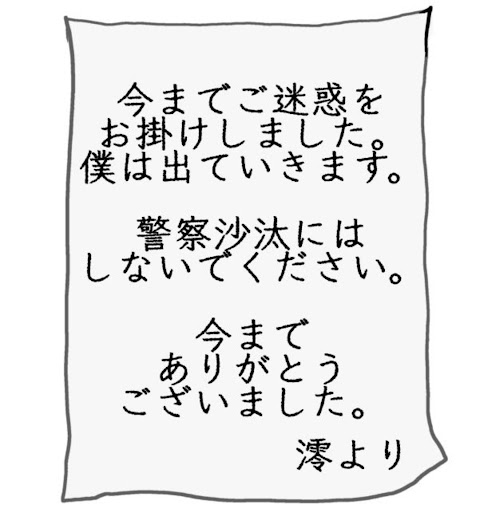 今までご迷惑を
お掛けしました。
僕は出ていきます。
警察沙汰には
しないでください。
今まで
ありがとう
ございました。
澪より